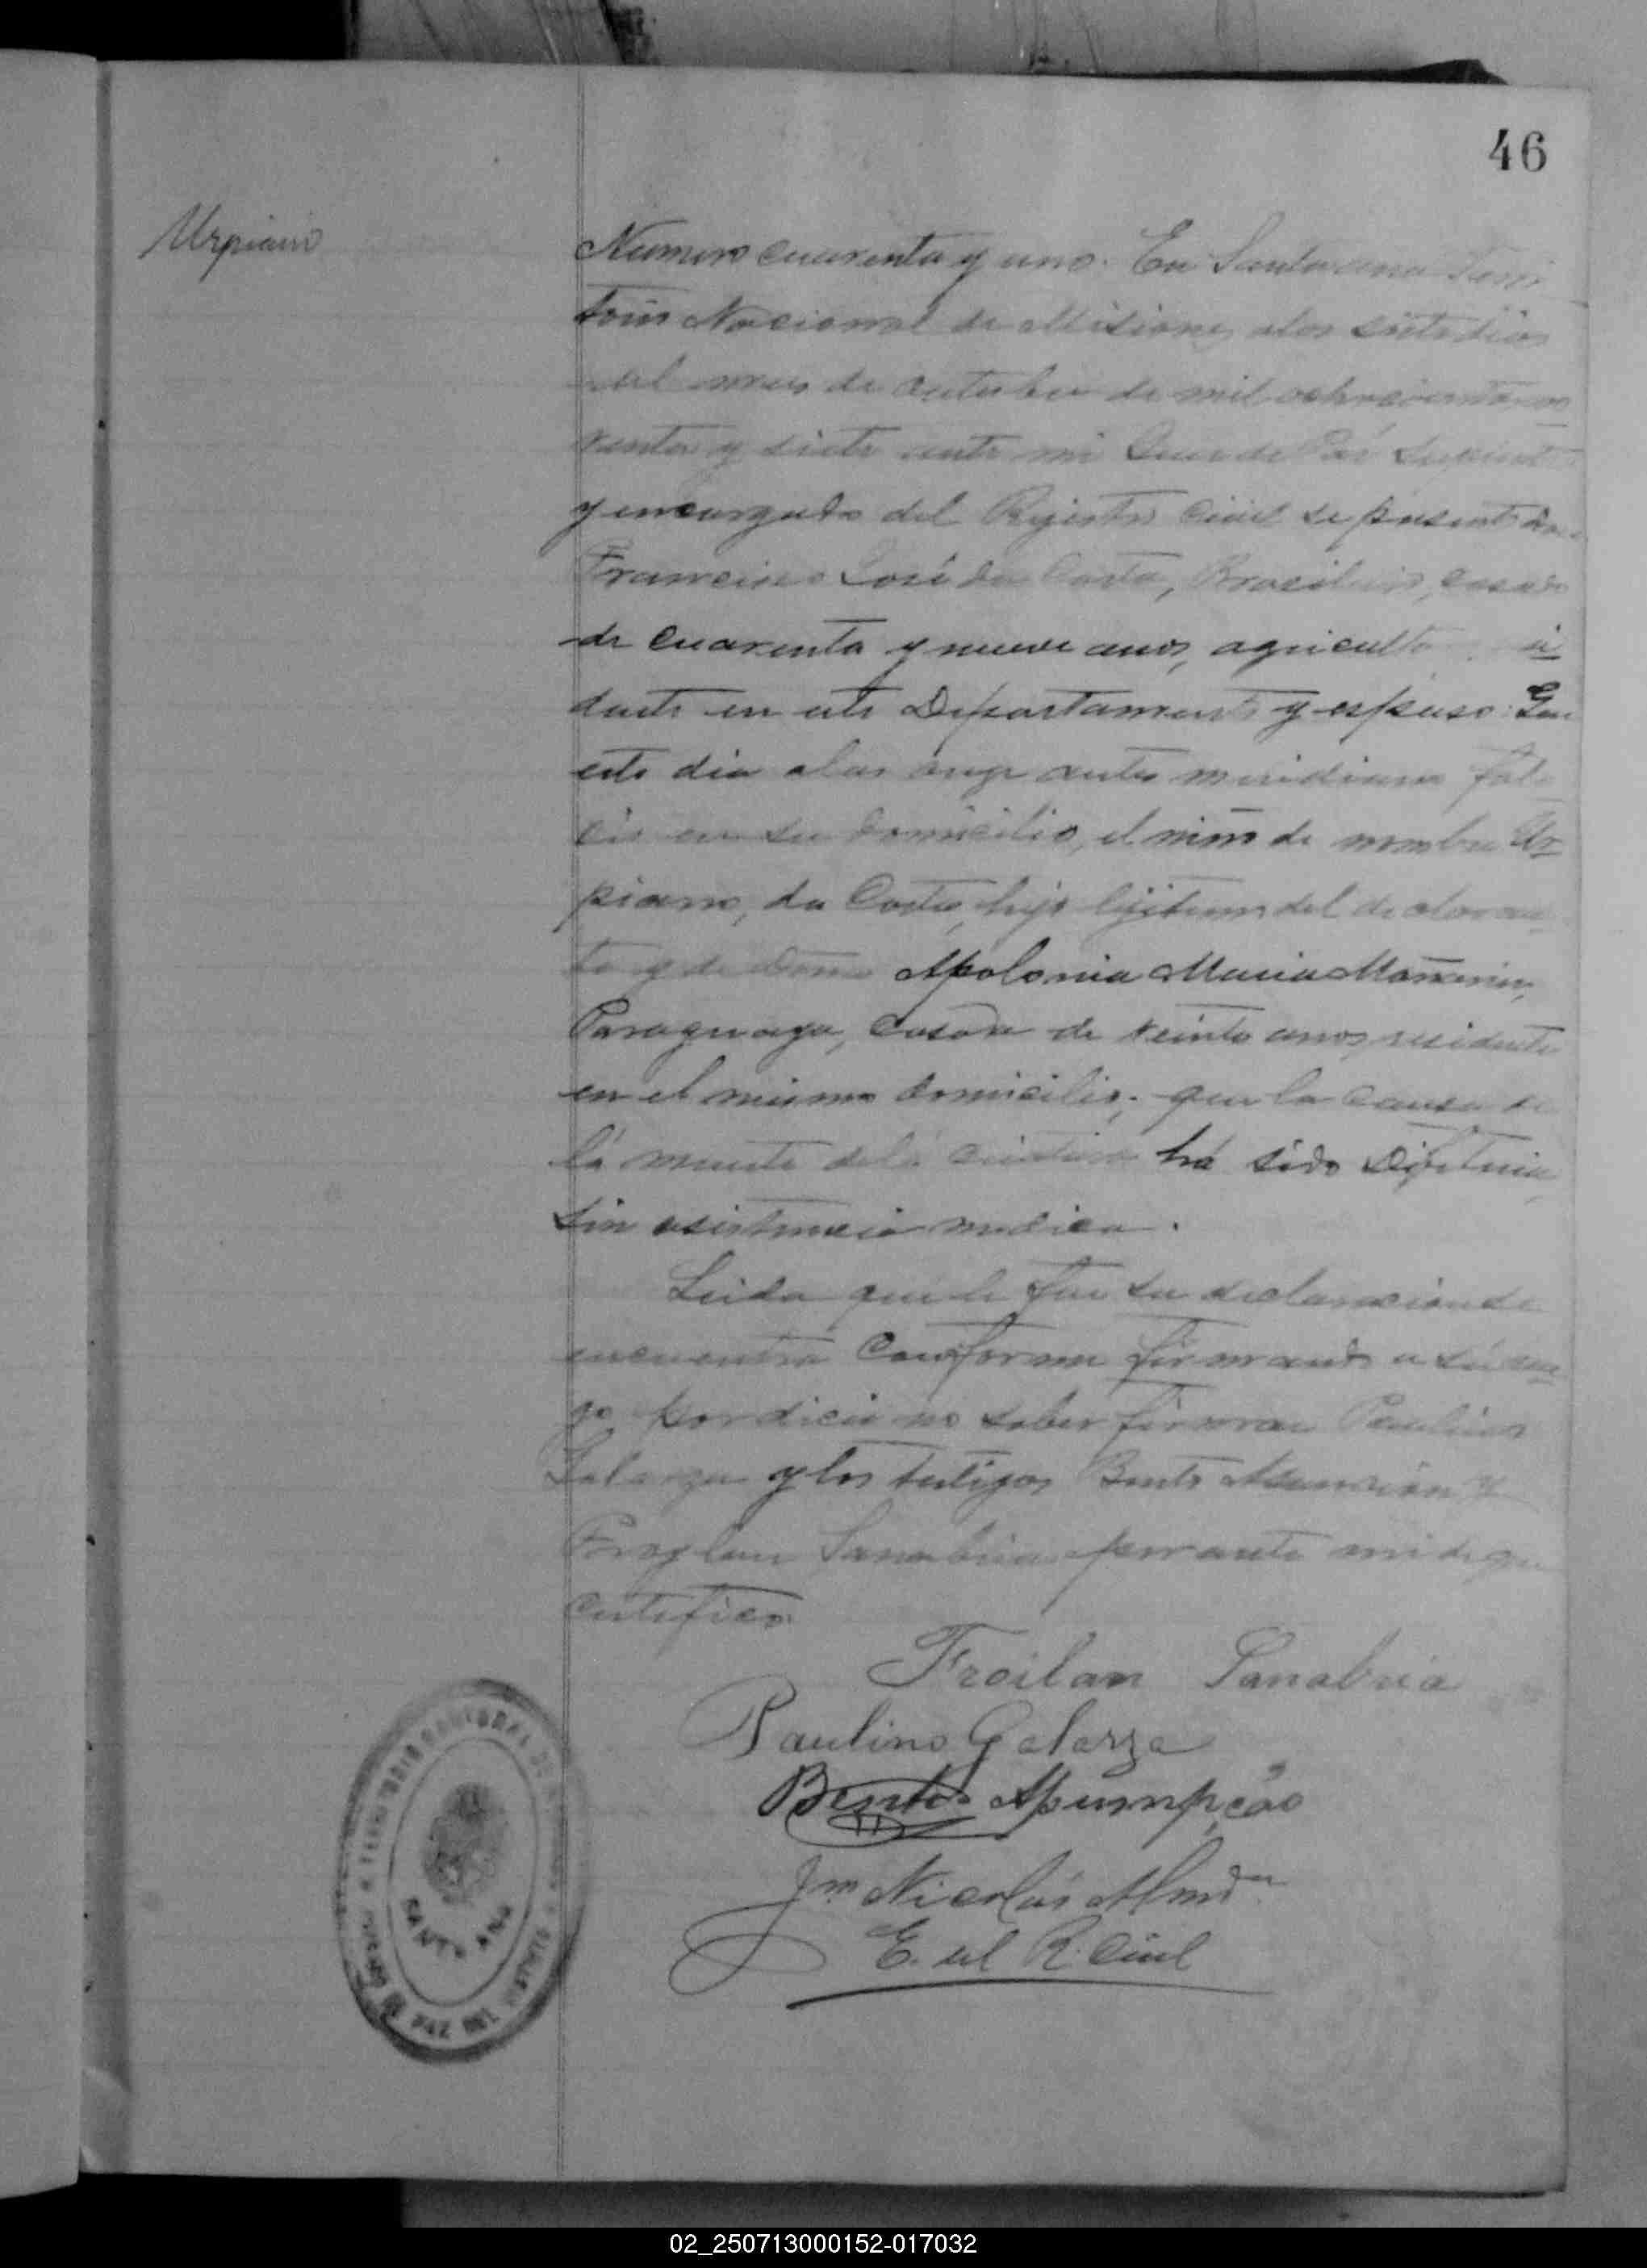 46
Urpiano
Numero cuarenta y uno. En Santa ana Terri
torio Nacional de Misiones a los siete dias
del mes de Outubre de mil ochocientos no
venta y siete ante mi Juez de Paz Suplente
y encargado del Rejistro Civil se presentó don
Francisco José da Costa, Brasilero, casado
de cuarenta y nueve anos, agricultor si
dente en este Departamento y espuso: Que
este dia a las onze ante meridiano fale
cio en su domicilio, el niño de nombre Ur
piano, da Costa, hijo lejitimo del declaran
te y de Dona Apolonia Maria
Paraguaya, casada de veinte anos, residente
en el mismo domicilio; que la causa de
lá muerte de lá criatura há sido Difteria,
sin asistencia medica.
Leida que le fue su declaracion
encuentra conforme firmando a sú rue
go por dicir no saber firmar Paulino
Galarza y los testigos Bento Asuncion y
Froylan Sanabria por ante mi de que
certifico.
Froilan Sanabria
Paulino Galarza
Bento Asumpção
Jm Nicolás
E. del R. Civil
SANTA ANA
JUZGADO DE PAZ DEL DISTRITO
02_250713000152-017032